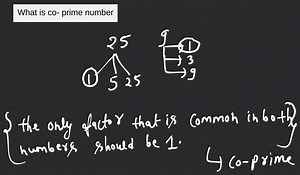 What is co- prime number
25
1 5 25
9
1
3
9
the only factor that is common in both
numbers should be 1.
co-prime